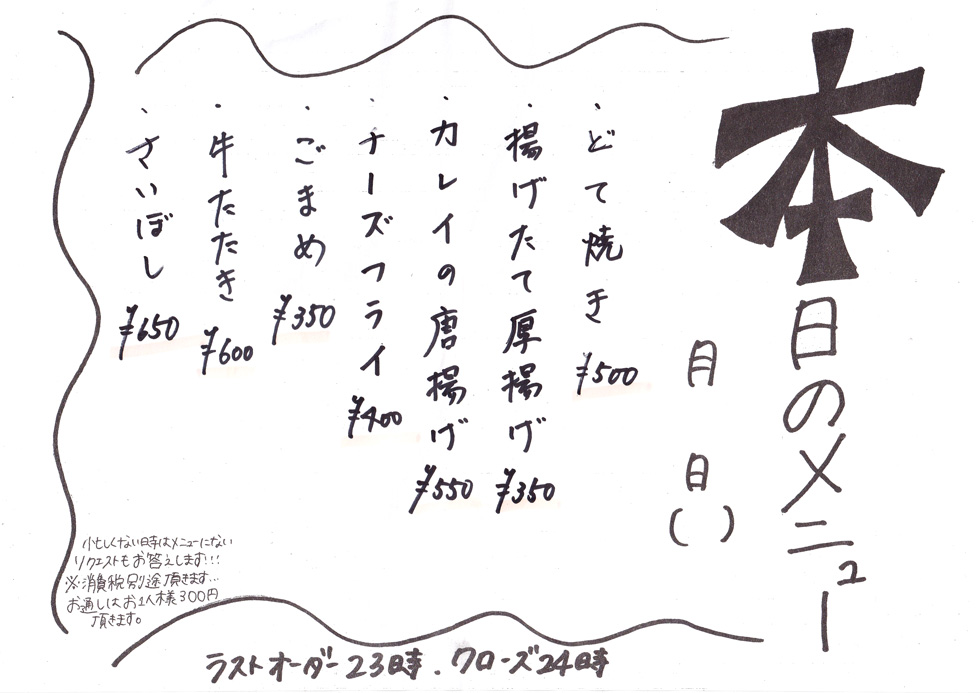 本日のメニュー
月 日 ( )
・どて焼き ¥500
・揚げたて厚揚げ ¥350
・カレイの唐揚げ ¥550
・チーズフライ ¥400
・ごまめ ¥350
・牛たたき ¥600
・さいぼし ¥650
小忙しくない時はメニューにない
リクエストもお答えします!!!
※消費税別途頂きます...
お通しはお1人様300円
頂きます。
ラストオーダー23時.クローズ24時